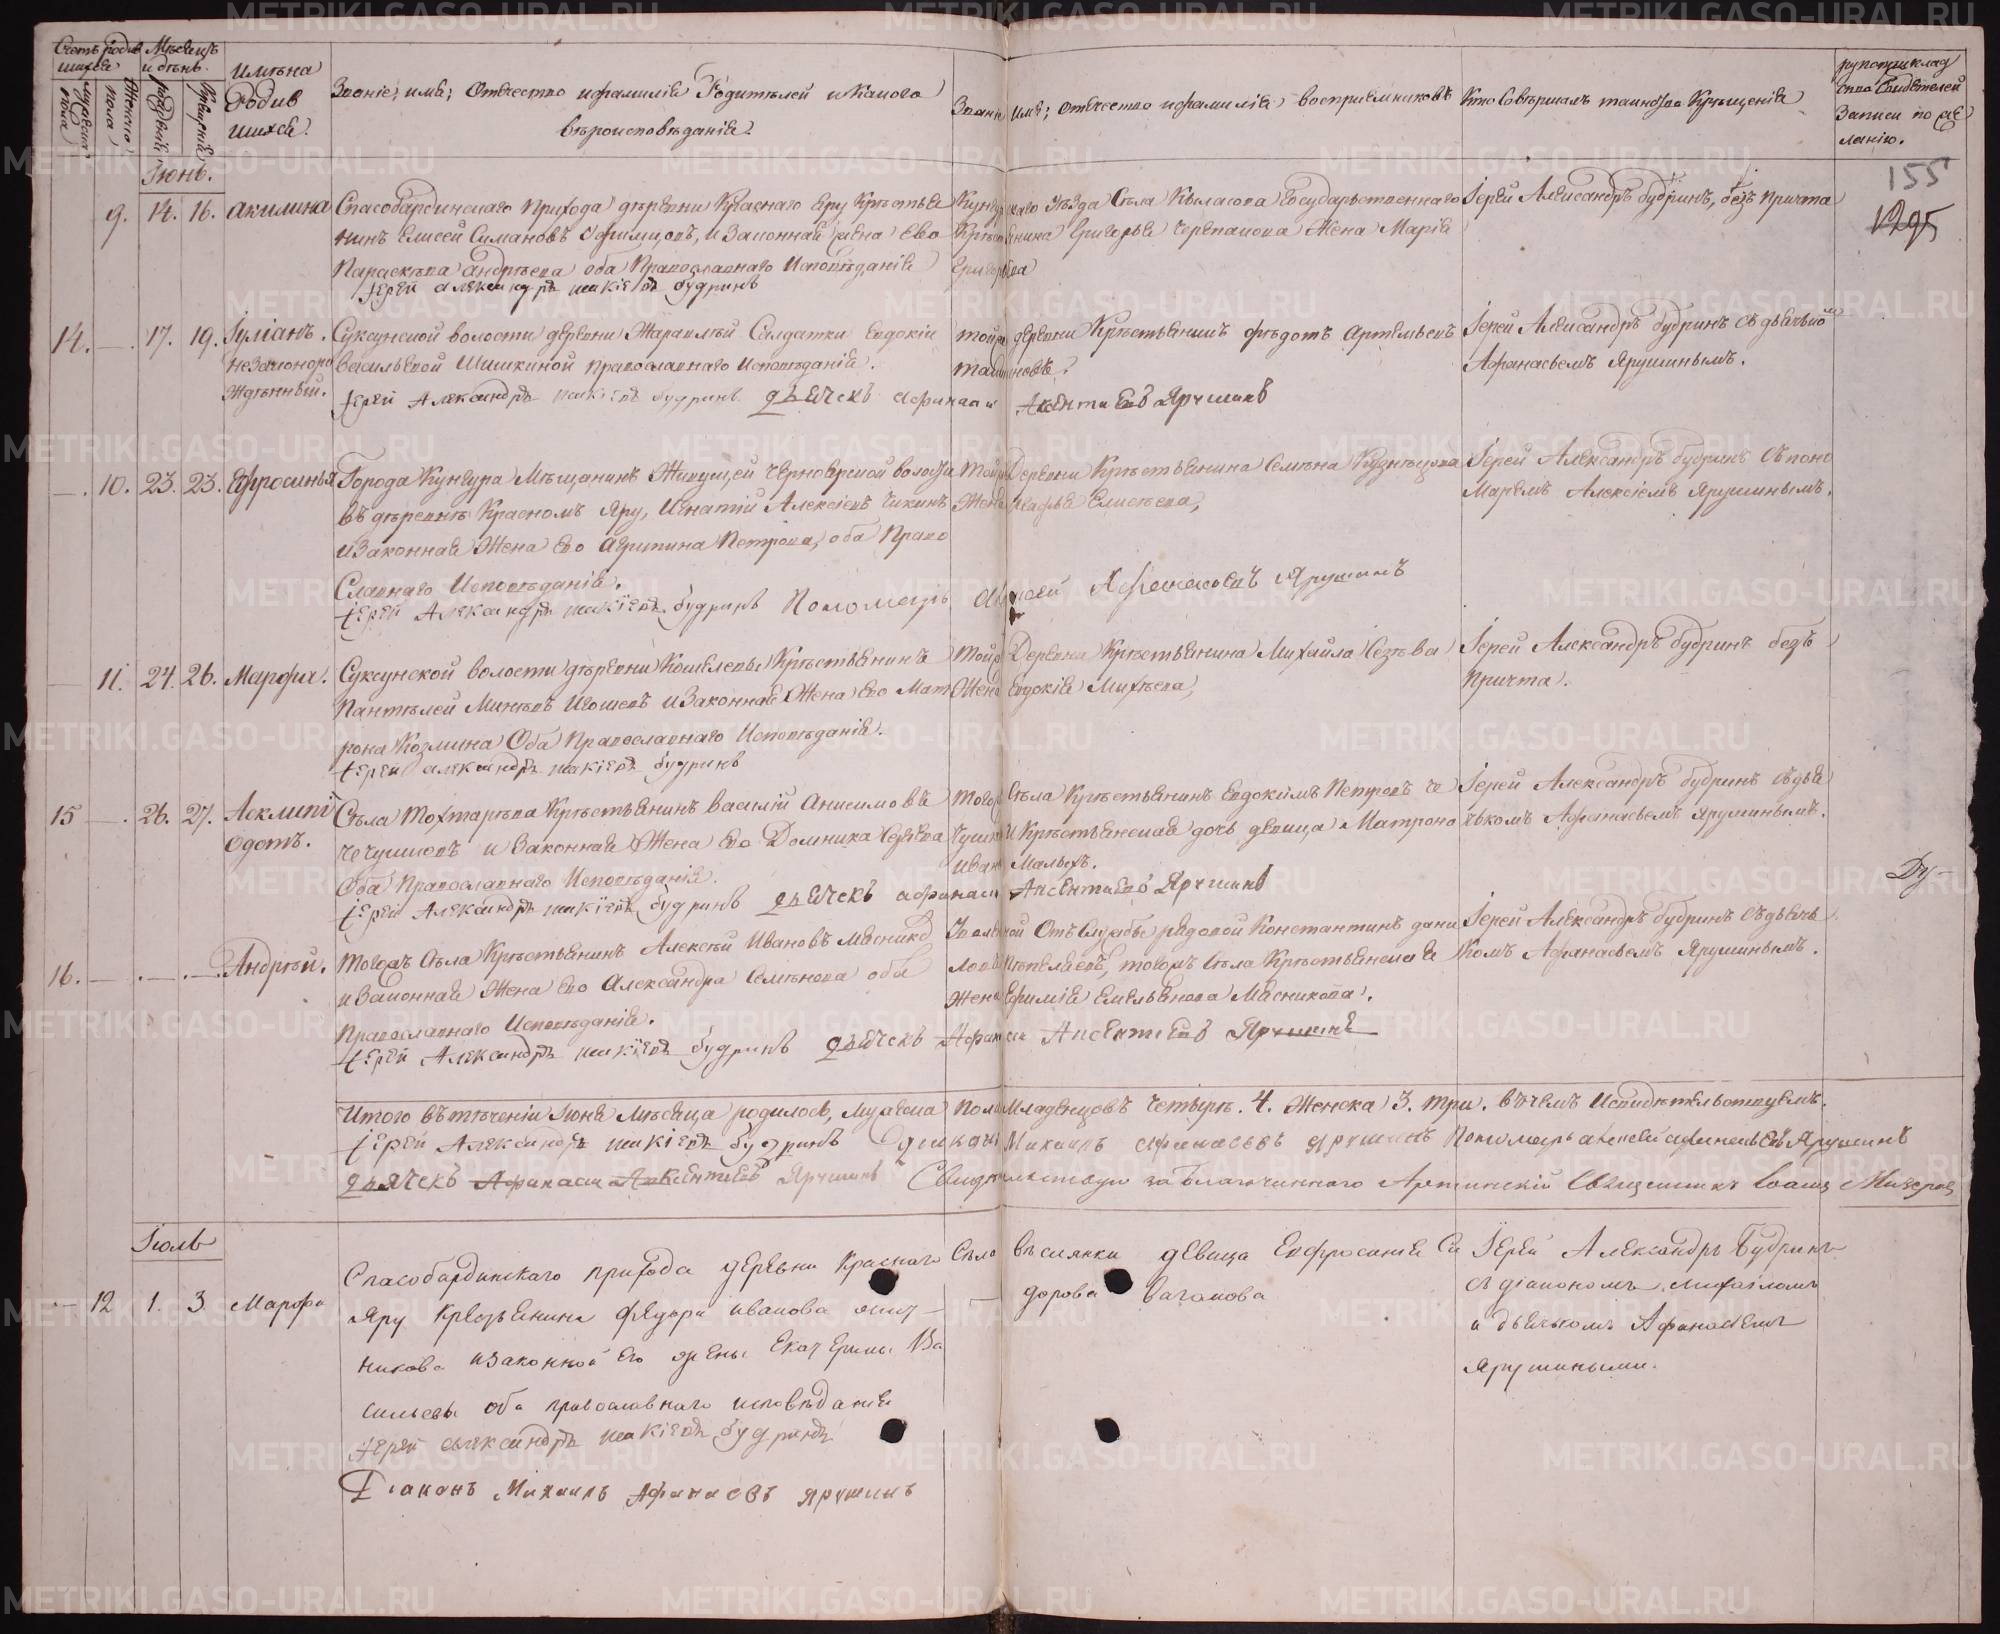 Счетъ родив
шихся
Мѣсяцъ
и день.
Имѣна
Родив
шихся.
Званіе, имя, Отечество и фамилія Родителей и Какого
вѣроисповѣданія.
Званіе имя, отечество и фамилія восприемниковъ
Кто Совершалъ таинство Крещенія
рукоприклад
ства Свидетелей
Записи по же
ланію.
мужеска
пола
Женска
пола
рожденія
Крещенія
155
Іюнь.
9. 14. 16. Акилина
Спасобардинскаго Прихода деревни Краснаго Яру Крѣстья
нинъ Елисей Симановъ и Законная жена Ево
Параскѣва Андрѣева оба Православнаго Исповѣданія
Іерей Александръ Іакіевъ Будринъ
Кунгурскаго Уѣзда Сѣла Кыласова Государственнаго
Крѣстьянина Григорья Черепанова Жена Марія
Григорьева
Іерей Александръ Будринъ, безъ Причта
14. — 17. 19. Іуліанъ.
незаконоро
жденный.
Суксунской волости деревни Солдатки Евдокіи
Васильевой Шишкиной Православнаго Исповѣданія.
Іерей Александръ Іакіевъ Будринъ дьячекъ Афанаси Аксентиевъ Ярушинъ
той деревни Крѣстьянинъ Ѳѣдотъ Артемьевъ
Іерей Александръ Будринъ съ дьячкомъ
Афанасьемъ Ярушинымъ.
— 10. 23. 23. Ефросинья
Города Кунгура Мѣщанинъ Живущей Черноярской волости
въ деревнѣ Красномъ Яру, Игнатій Алексѣевъ Чикинъ
и Законная Жена Ево Агрипина Петрова, оба Право
Славнаго Исповѣданія.
Іерей Александръ Іакіевъ Будринъ Пономарь Алексей Афонасьевъ Ярушинъ
той Деревни Крѣстьянина Семѣна Кузнѣцова
Жена Агафья Елисѣева,
Іерей Александръ Будринъ съ поно
Марѣмъ Алексіемъ Ярушинымъ.
— 11. 24. 26. Марфа.
Суксунской волости деревни Кошелевы Крѣстьянинъ
Пантѣлей Минѣевъ Игошевъ и Законная Жена Ево Мат
рона Козмина Оба Православнаго Исповѣданія.
Іерей Александръ Іакіевъ Будринъ
той Деревни Крѣстьянина Михайла
Жена Евдокія Михѣева,
Іерей Александръ Будринъ безъ
Причта.
15 — 26. 27. Асклипі
одотъ.
Сѣла Тохтарева Крѣстьянинъ Василій Анисимовъ
Чечушковъ и Законная Жена Ево Домника
Оба Православнаго Исповѣданія.
Іерей Александръ Іакіевъ Будринъ дьячекъ Афанаси Аксентиевъ Ярушинъ
Того Сѣла Крѣстьянинъ Евдокимъ Петровъ Че
чушковъ И Крѣстьянская дочь девица Матрона
Иван Малыхъ.
Іерей Александръ Будринъ съ дья
чькомъ Афанасьемъ Ярушинымъ.
Ду-
16. — — — Андрѣй.
Тогожъ Сѣла Крѣстьянинъ Алексѣй Ивановъ Мясник
и Законная Жена Ево Александра Семѣнова оба
Православнаго Исповѣданія.
Іерей Александръ Іакіевъ Будринъ дьячекъ Афанаси Аксентиевъ Ярушинъ
Уволеной Отъ Службы рядовой Константинъ Дани
ловъ Пѣпеляевъ, тогожъ Сѣла Крѣстьянская
Жена Ефимія Емельянова Мясникова.
Іерей Александръ Будринъ съ дьячь
комъ Афанасьемъ Ярушинымъ.
Итого въ теченіи Іюня Мѣсяца родилось, Мужеска Пола Младенцовъ Четыре. 4. Женска 3. три. въ чемъ Исвидѣтельствуемъ.
Іерей Александръ Іакіевъ Будринъ Діаконъ Михаилъ Афанасьевъ Ярушинъ Пономарь Алексей Афанасьевъ Ярушинъ
дьячекъ Афанаси Аксентиевъ Ярушинъ Свидетельствую за Благочиннаго Артинскій Священникъ Іоаннъ
Іюль
— 12 1. 3. Марфа
Спасобардинскаго прихода деревни Краснаго
Яру Крестьянина Федора Иванова
никова и законной его жены Екатерины Ва
сильевы оба православнаго исповѣданія
Іерей Александръ Іакіевъ Будринъ
Діаконъ Михаилъ Афанасьевъ Ярушинъ
Села девица Евфросинія Си
дорова Ваганова
Іерей Александръ Будринъ
съ діакономъ Михаиломъ
и дьячькомъ Афанасіемъ
Ярушиными.
METRIKI.GASO-URAL.RU